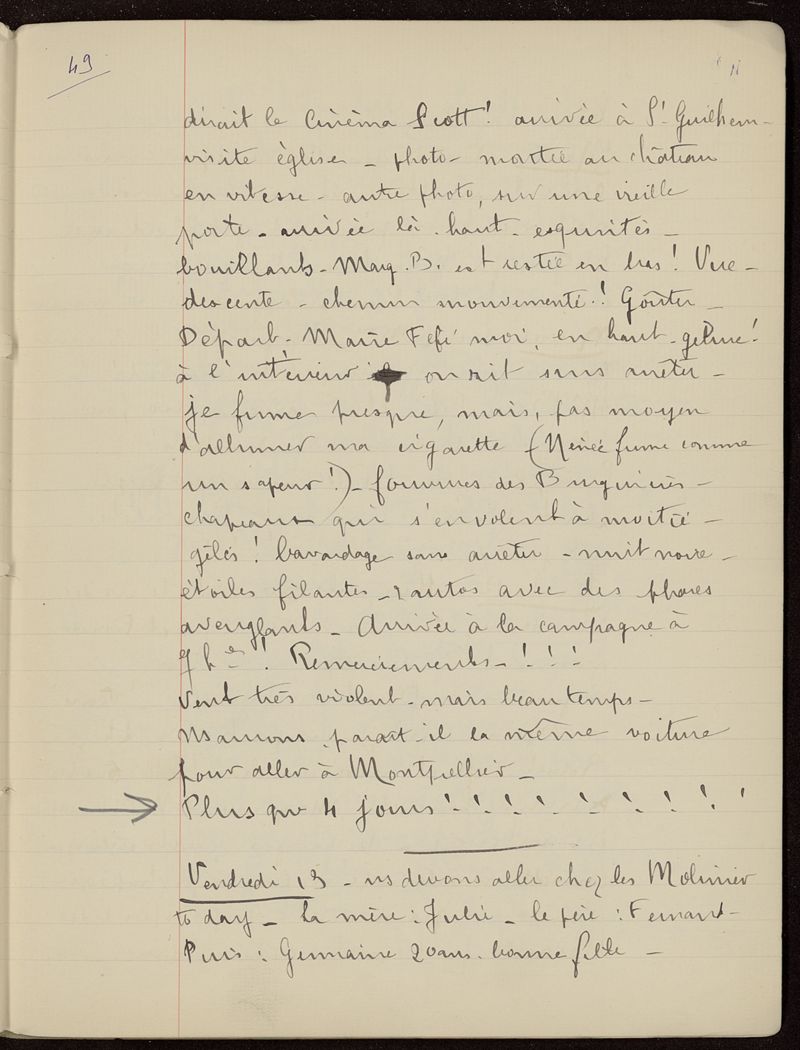 49
11
dirait le Cinéma Scott ! arrivée à St Guilhem -
visite église - photo - montée au château
en vitesse - autre photo, sur une vieille
porte - arrivée là-haut - exquintés -
bouillants - Marg. B. est restée en bas ! Vue -
descente - chemin mouvementé ! Goûter -
Départ - Marie Féfé moi, en haut - gelure !
à l'intérieur on rit sans arrêter -
je fume presque, mais, pas moyen
d'allumer ma cigarette (Renée fume comme
un sapeur !) - des
chapeaux qui s'envolent à moitié -
gelés ! bavardage sans arrêter - nuit noire -
étoiles filantes - 2 autos avec des phares
aveuglants - Arrivée à la campagne à
7 hes ! Remerciements - ! ! !
Vent très violent - mais beau temps -
ns aurons, paraît-il la même voiture
pour aller à Montpellier -
Plus que 4 jours ! ! ! ! ! ! ! ! ! !
Vendredi 13 - ns devons aller chez les Molinier
to day - La mère : Julie - le père : Fernand -
Puis : Germaine 20 ans. bonne fille -